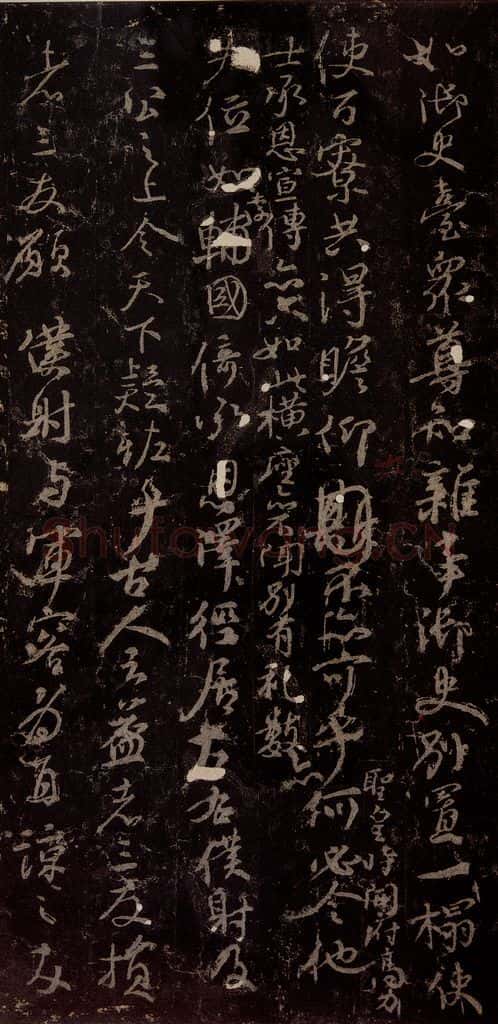 如御史臺衆尊知雜事御史別置一榻使
使百寮共得瞻仰不亦可乎何必令他
聖皇時開府高力
士承恩宣傳亦只如此橫座亦不聞別有礼數亦
失位如李輔國倚承恩澤徑居左右僕射及
三公之上令天下疑恠乎古人云益者三友損
者三友願僕射与軍容為直諒之友
Shufawang.CN